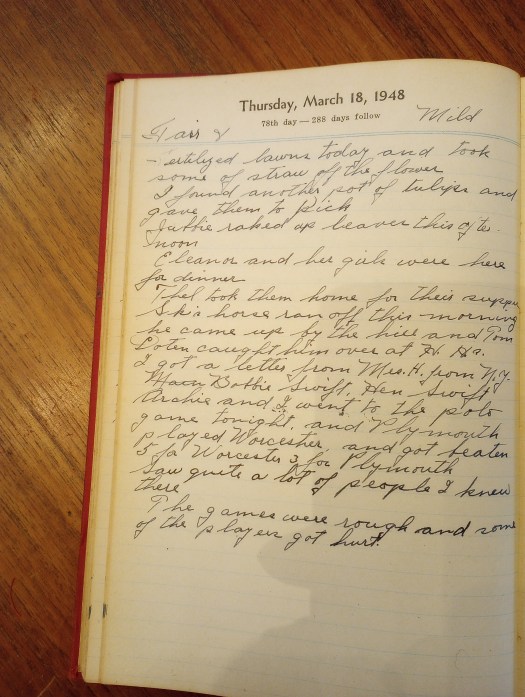 Thursday, March 18, 1948
78th day — 288 days follow
Fair & Mild
Fertilized lawns today and took
some of straw off the flower
I found another pot of tulips and
gave them to Rick
raked up leaves this after-
noon
Eleanor and her girls were here
for dinner
Thel took them home for their supper
Sk's horse ran off this morning
he came up by the hill and Tom
caught him over at H. H's.
I got a letter from Mrs. H. from N.Y.
Bobbie Swift, Hen Swift
Archie and I went to the polo
game tonight, and Plymouth
played Worcester, and got beaten
5 for Worcester 3 for Plymouth
Saw quite a lot of people I knew
there
The games were rough and some
of the players got hurt.